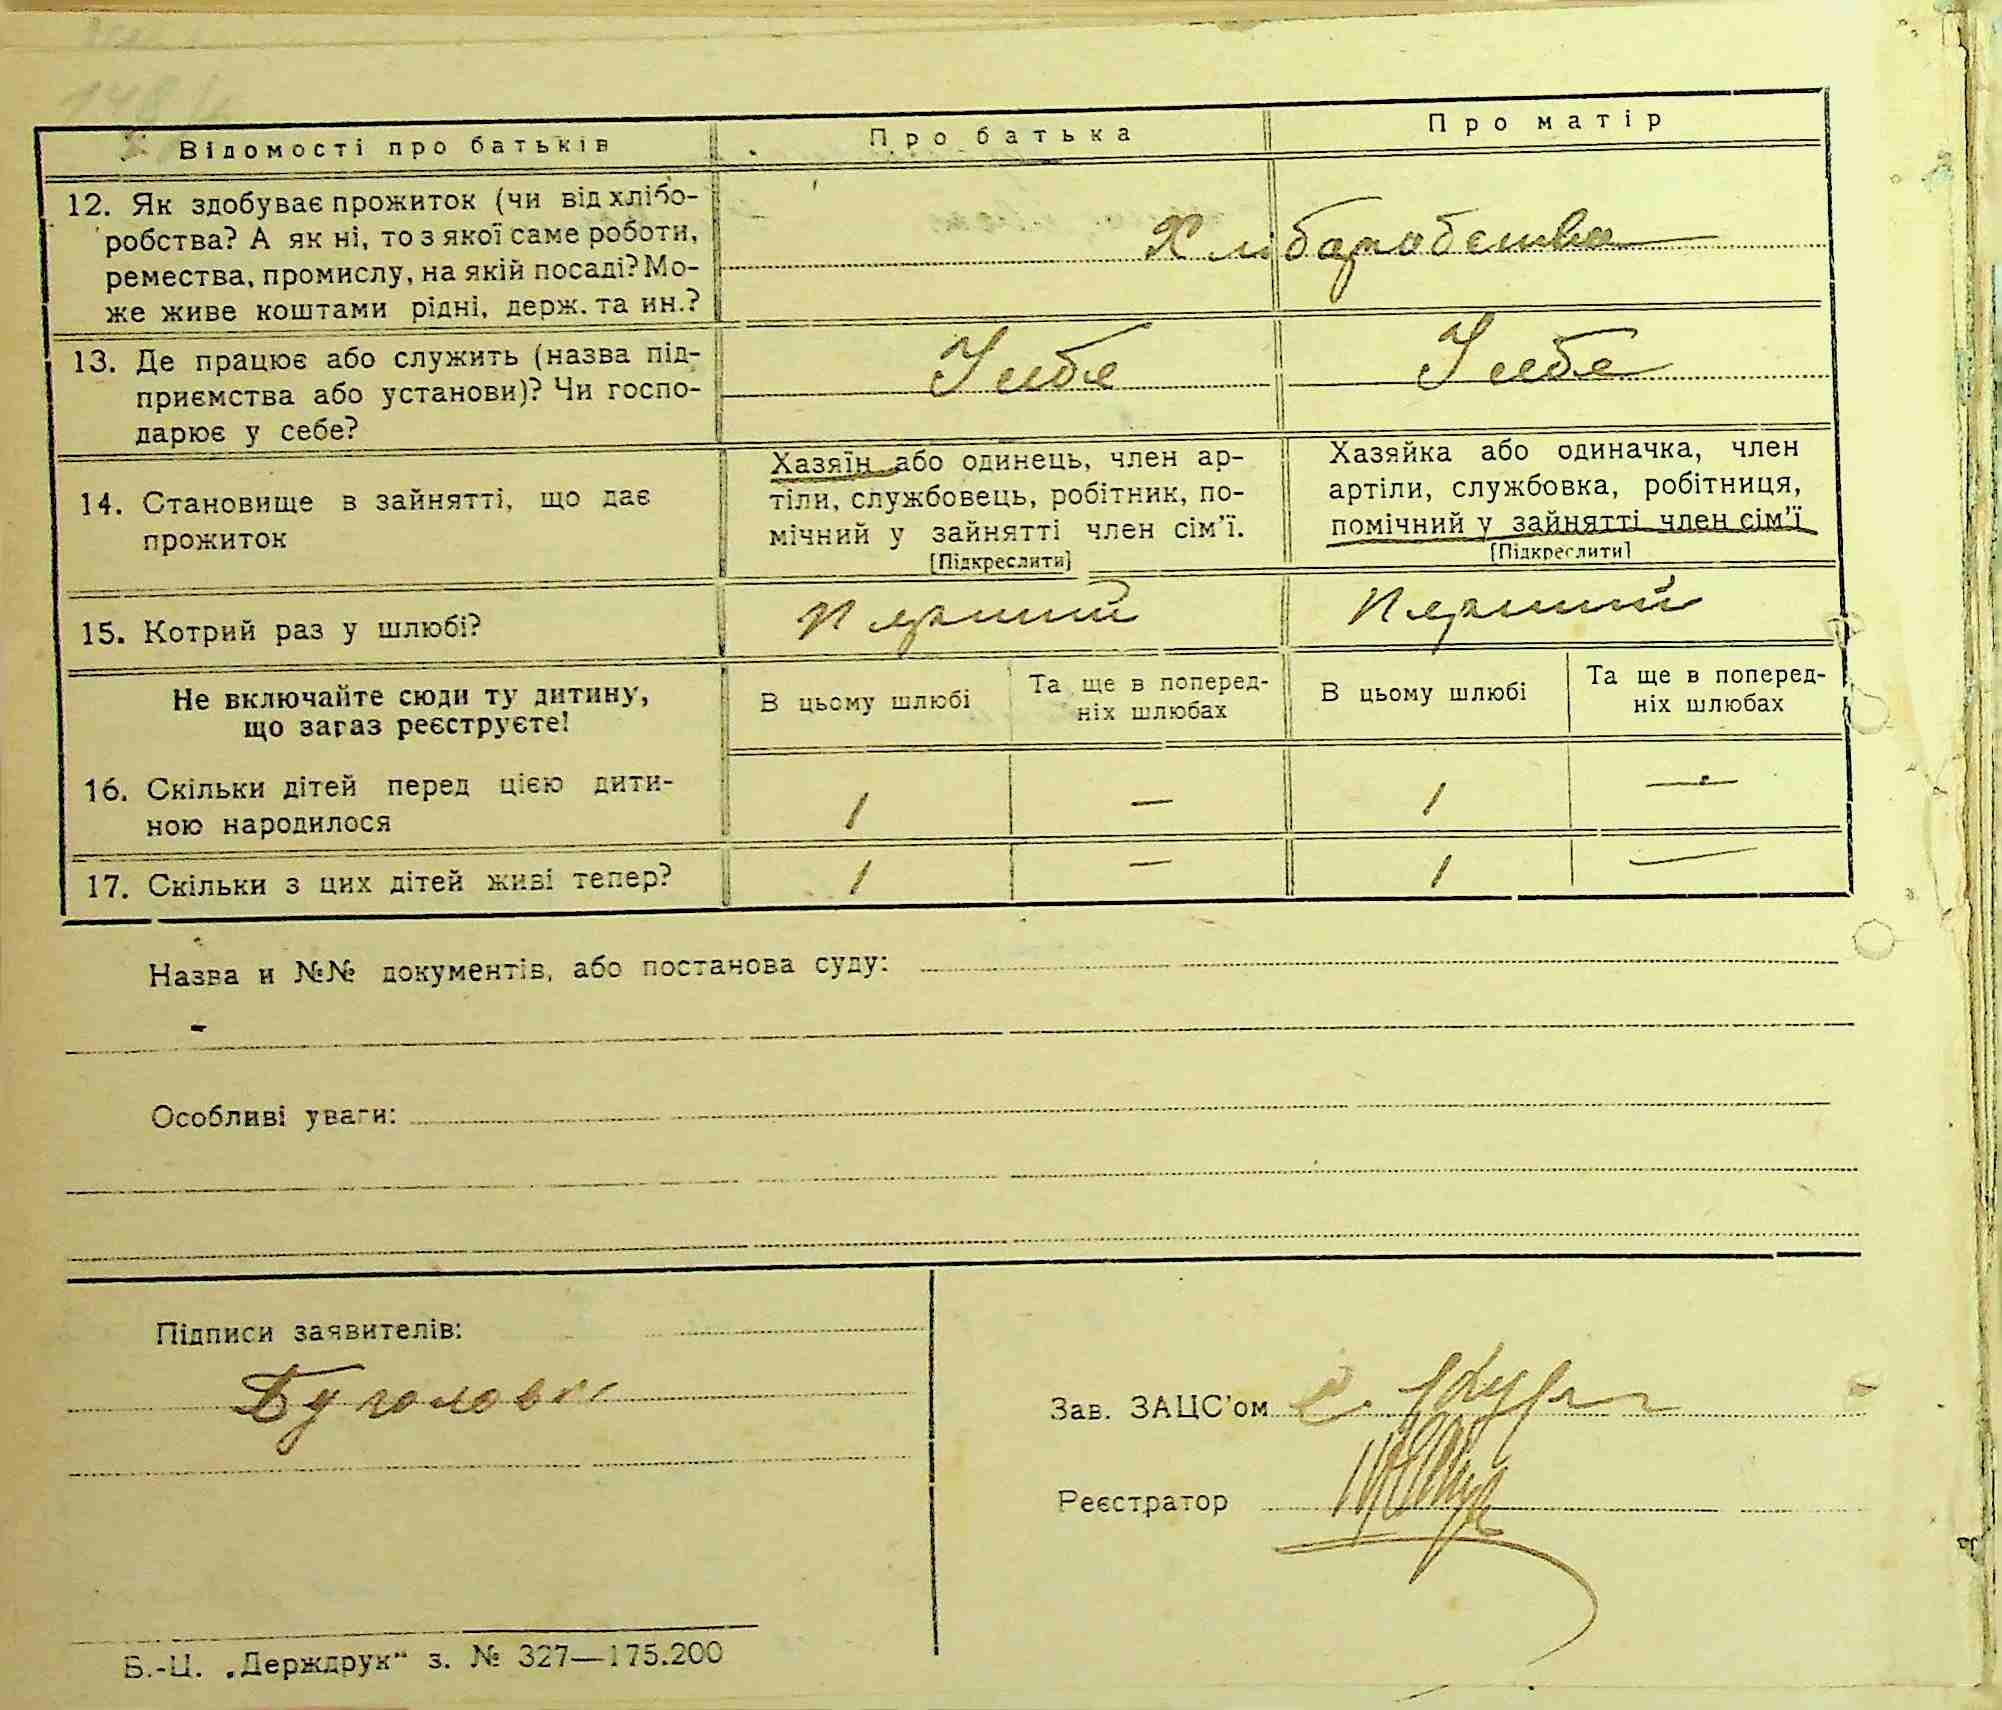 Відомості про батьків
Про батька
Про матір
12. Як здобуває прожиток (чи від хлібо-
робства? А як ні, то з якої саме роботи,
ремества, промислу, на якій посаді? Мо-
же живе коштами рідні, держ. та ин.?
Хліборобство
13. Де працює або служить (назва під-
приємства або установи)? Чи госпо-
дарює у себе?
У себе
У себе
14. Становище в зайнятті, що дає
прожиток
Хазяїн або одинець, член ар-
тіли, службовець, робітник, по-
мічний у зайнятті член сім'ї.
[Підкреслити]
Хазяйка або одиначка, член
артіли, службовка, робітниця,
помічний у зайнятті член сім'ї
[Підкреслити]
15. Котрий раз у шлюбі?
Перший
Перший
Не включайте сюди ту дитину,
що зараз реєструєте!
В цьому шлюбі
Та ще в поперед-
ніх шлюбах
В цьому шлюбі
Та ще в поперед-
ніх шлюбах
16. Скільки дітей перед цією дити-
ною народилося
1 — 1 —
17. Скільки з цих дітей живі тепер?
1 — 1 —
Назва и №№ документів, або постанова суду:
Особливі уваги:
Підписи заявителів:
Зав. ЗАЦС'ом
Реєстратор
Б.-Ц. „Держдрук“ з. № 327—175.200